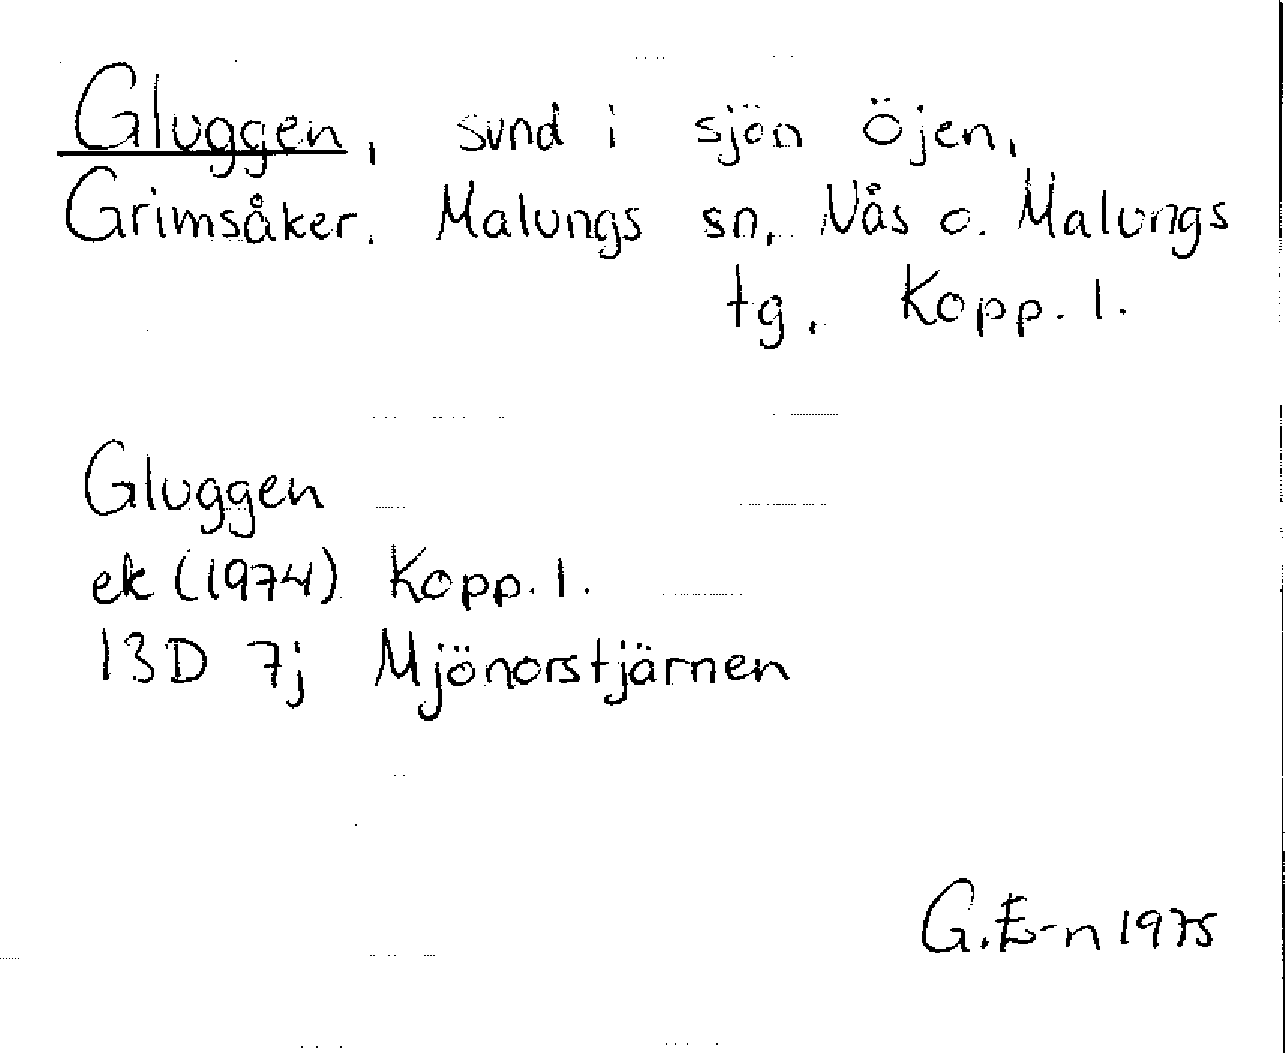 Gluggen, sund i sjön Öjen,
Grimsåker. Malungs sn, Nås o. Malungs
tg, Kopp. l.
Gluggen
ek (1974) Kopp. l.
13D 7j Mjönorstjärnen
G.E-n 1975